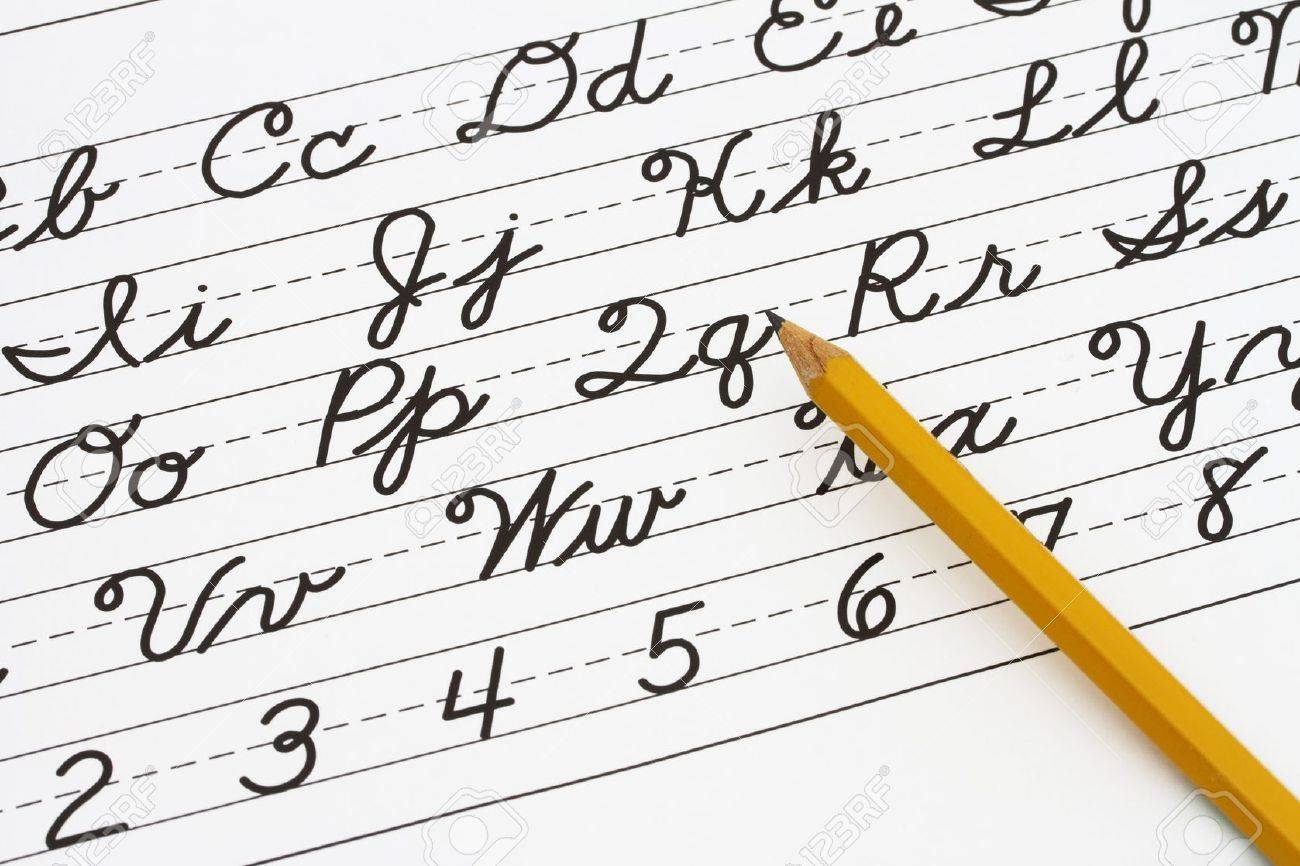 b Cc Dd Ee
Ii Jj Kk Ll
Oo Pp Qq Rr Ss
Vv Ww Xx Y
2 3 4 5 6 7 8